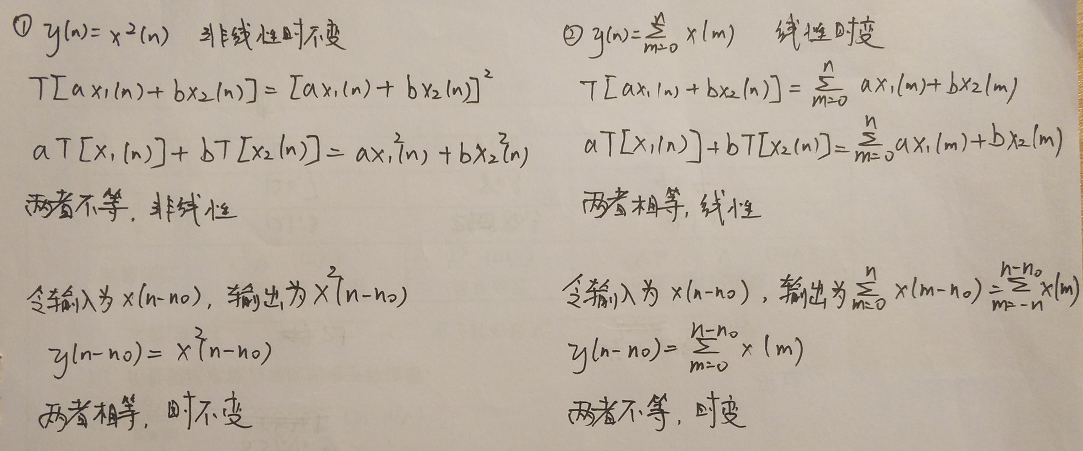 ① y(n)=x²(n) 非线性时不变
T[ax₁(n)+bx₂(n)]=[ax₁(n)+bx₂(n)]²
aT[x₁(n)]+bT[x₂(n)]=ax₁²(n)+bx₂²(n)
两者不等,非线性
令输入为x(n-n₀),输出为x²(n-n₀)
y(n-n₀)=x²(n-n₀)
两者相等,时不变
② y(n)=∑_{m=0}^{n} x(m) 线性时变
T[ax₁(n)+bx₂(n)]=∑_{m=0}^{n} ax₁(m)+bx₂(m)
aT[x₁(n)]+bT[x₂(n)]=∑_{m=0}^{n} ax₁(m)+bx₂(m)
两者相等,线性
令输入为x(n-n₀),输出为∑_{m=0}^{n} x(m-n₀)=∑_{m=-n}^{n-n₀} x(m)
y(n-n₀)=∑_{m=0}^{n-n₀} x(m)
两者不等,时变